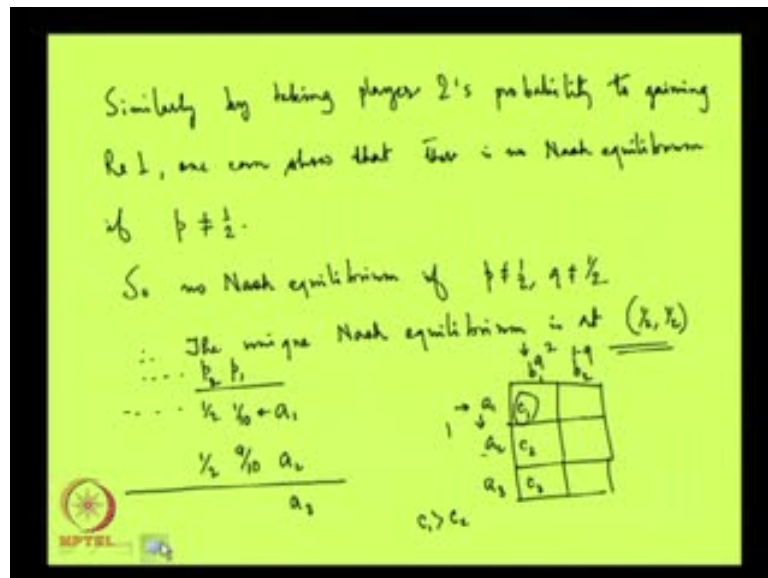 Similarly by taking player 2's probability to gaining
Re 1, one can show that there is no Nash equilibrium
if p ≠ 1/2.
So no Nash equilibrium if p ≠ 1/2, q ≠ 1/2
∴ The unique Nash equilibrium is at (1/2, 1/2)
.... p2 p1
.... 1/2 1/10 ← a1
1/2 9/10 a2
a3
↓ q 2 1-q
b1 b2
1 → a1 c1
↓ a2 c2
a3 c3
c1 > c2
NPTEL